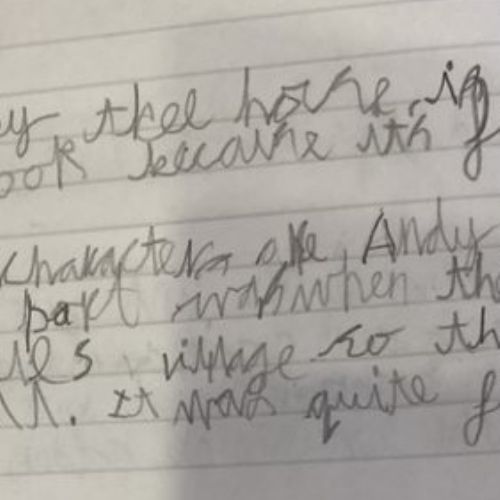 ey thee house. is
ook because its f
characters are Andy
part was when the
les village so th
ll. It was quite f